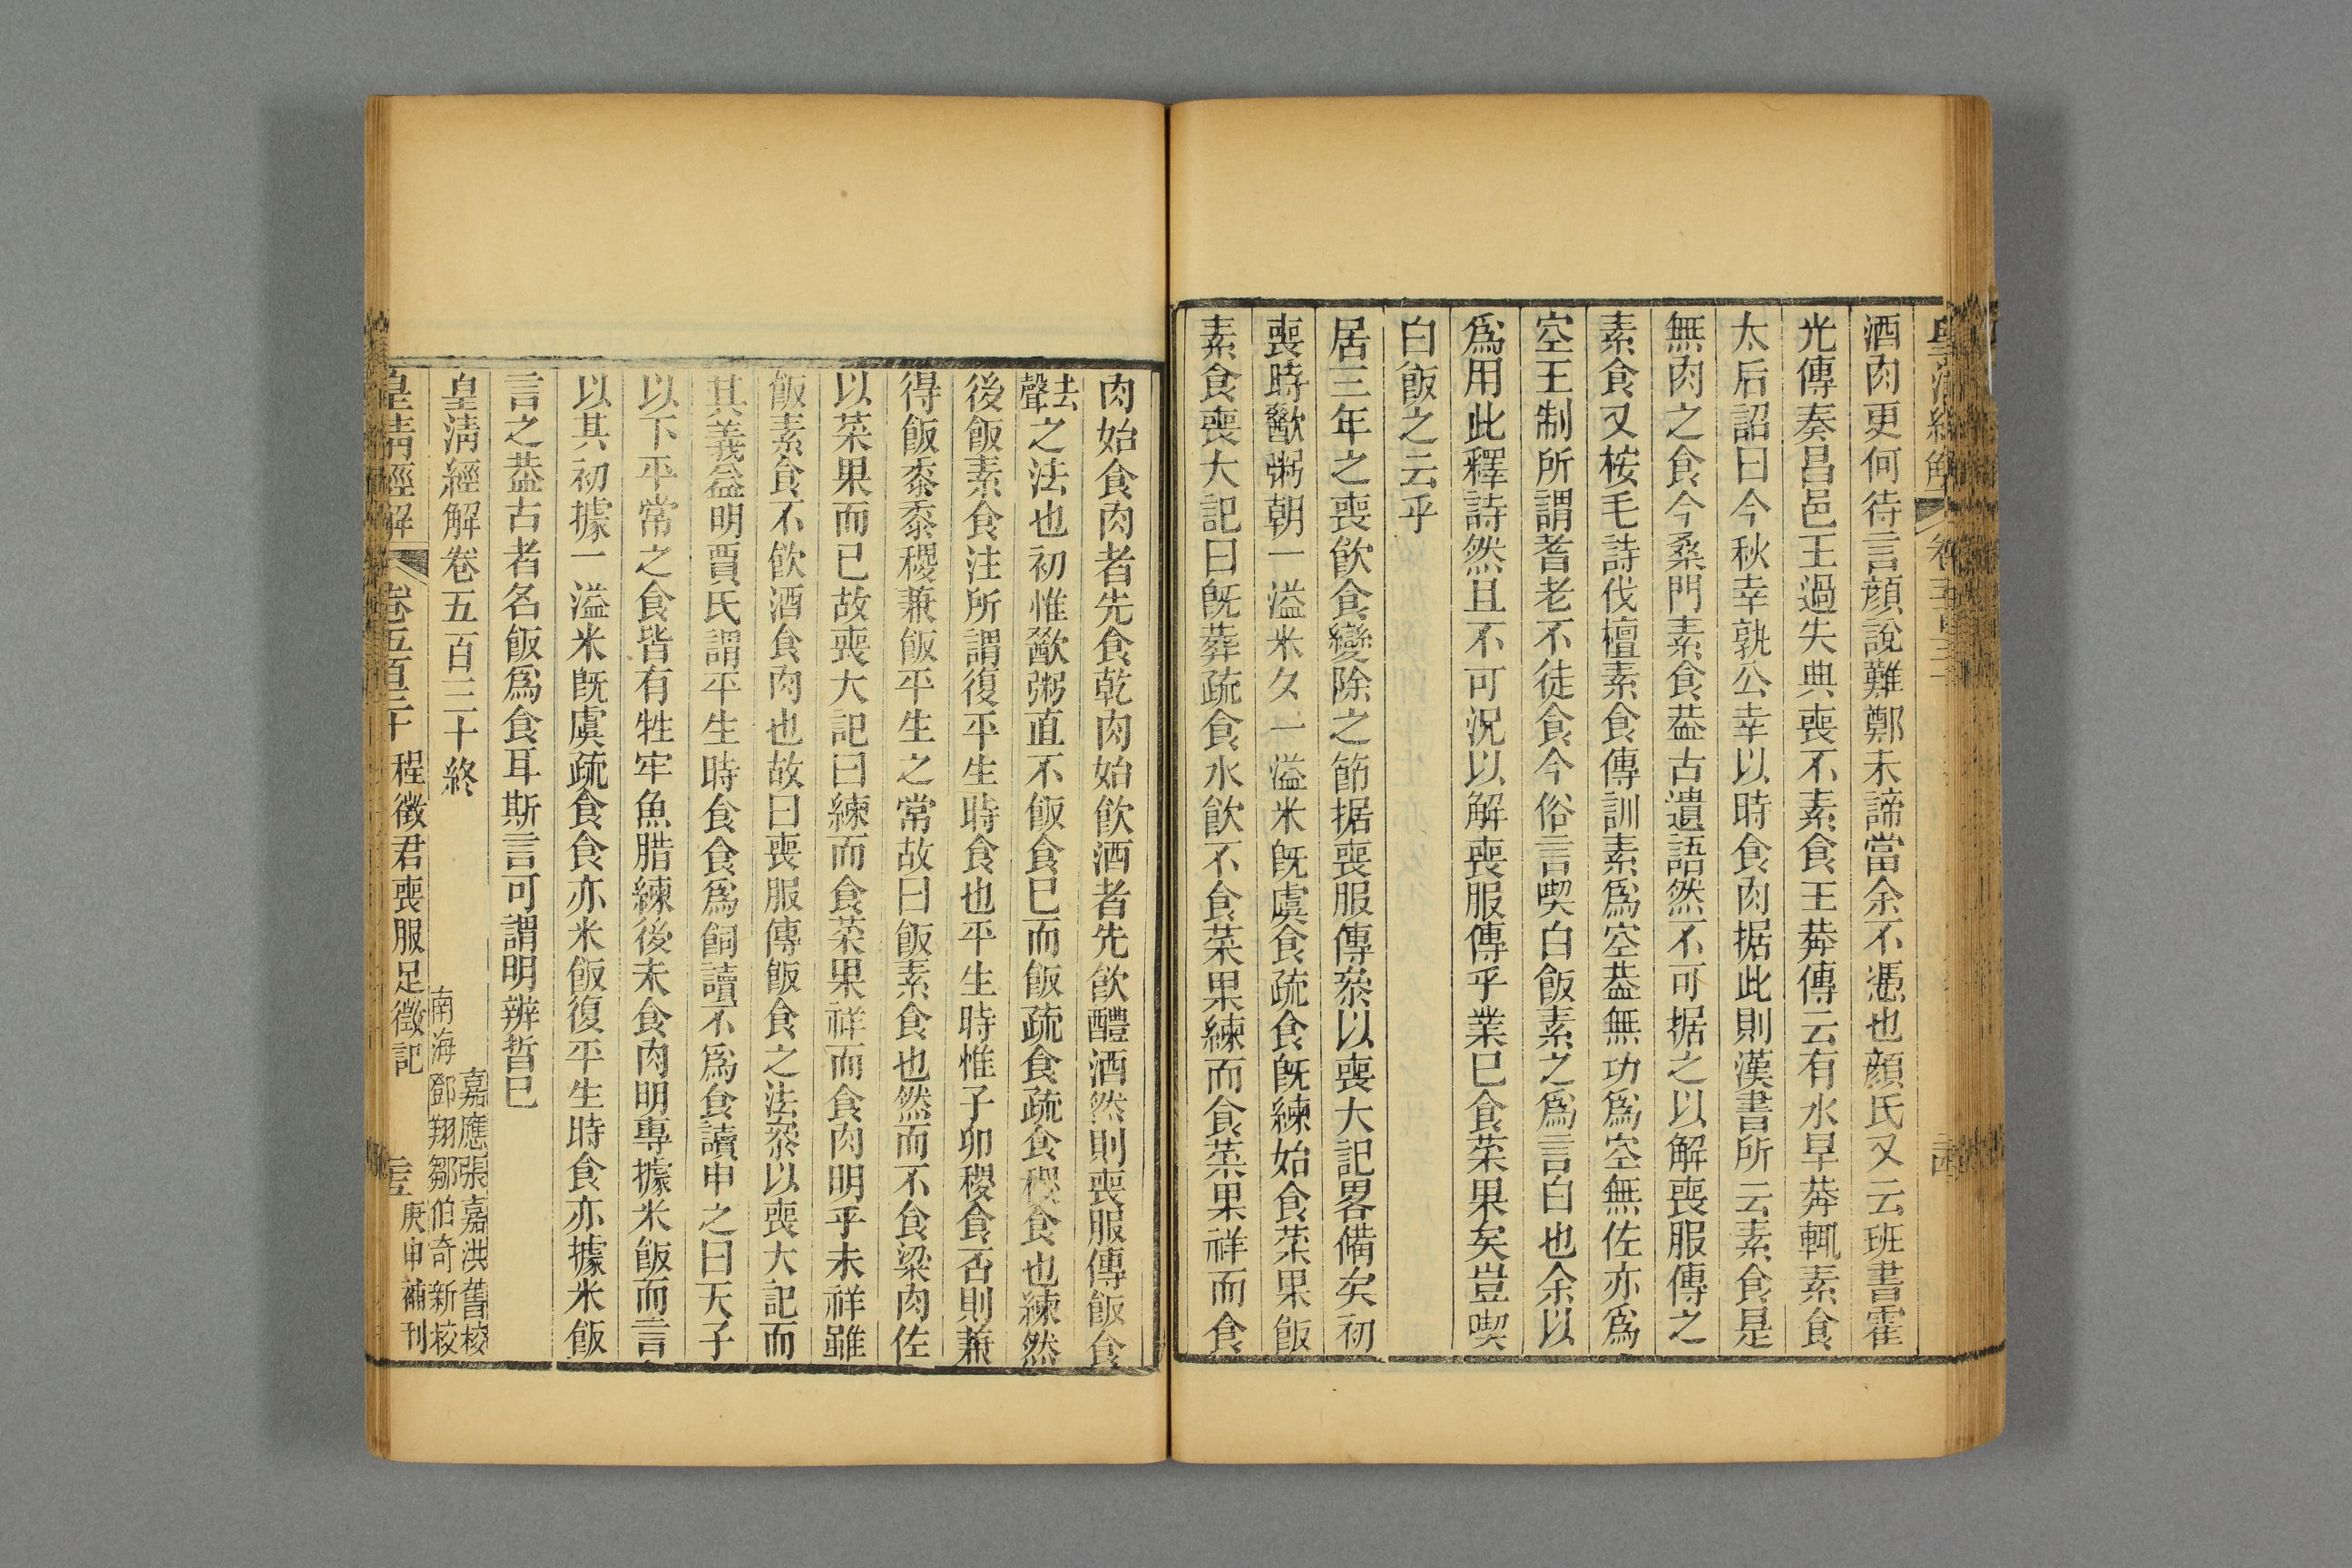 皇清經解
酒肉更何待言顔說難鄭未諦當余不憑也顔氏又云班書霍
光傳奏昌邑王過失典喪不素食王莽傳云有水旱莽輒素食
太后詔曰今秋幸孰公幸以時食肉据此則漢書所云素食是
無肉之食今桑門素食葢古遺語然不可据之以解喪服傳之
素食又桉毛詩伐檀素食傳訓素爲空葢無功爲空無佐亦爲
空王制所謂耆老不徒食今俗言喫白飯素之爲言白也余以
爲用此釋詩然且不可況以解喪服傳乎業巳食菜果矣豈喫
白飯之云乎
居三年之喪飮食變除之節据喪服傳叅以喪大記畧備矣初
喪時歠粥朝一溢米夂一溢米旣虞食疏食旣練始食菜果飯
素食喪大記曰旣葬疏食水飮不食菜果練而食菜果祥而食
肉始食肉者先食乾肉始飮酒者先飮醴酒然則喪服傳飯食
去聲之法也初惟歠粥直不飯食巳而飯疏食疏食稷食也練然
後飯素食注所謂復平生時食也平生時惟子卯稷食否則兼
得飯黍黍稷兼飯平生之常故曰飯素食也然而不食粱肉佐
以菜果而已故喪大記曰練而食菜果祥而食肉明乎未祥雖
飯素食不飮酒食肉也故曰喪服傳飯食之法叅以喪大記而
其義益明賈氏謂平生時食食爲飼讀不爲食讀申之曰天子
以下平常之食皆有牲牢魚腊練後未食肉明專據米飯而言
以其初據一溢米旣虞疏食食亦米飯復平生時食亦據米飯
言之葢古者名飯爲食耳斯言可謂明辨晢巳
皇清經解卷五百三十終
嘉應張嘉洪舊校
南海鄧翔鄒伯奇新校
皇清經解 卷五百三十 程徵君喪服足徵記 庚申補刊